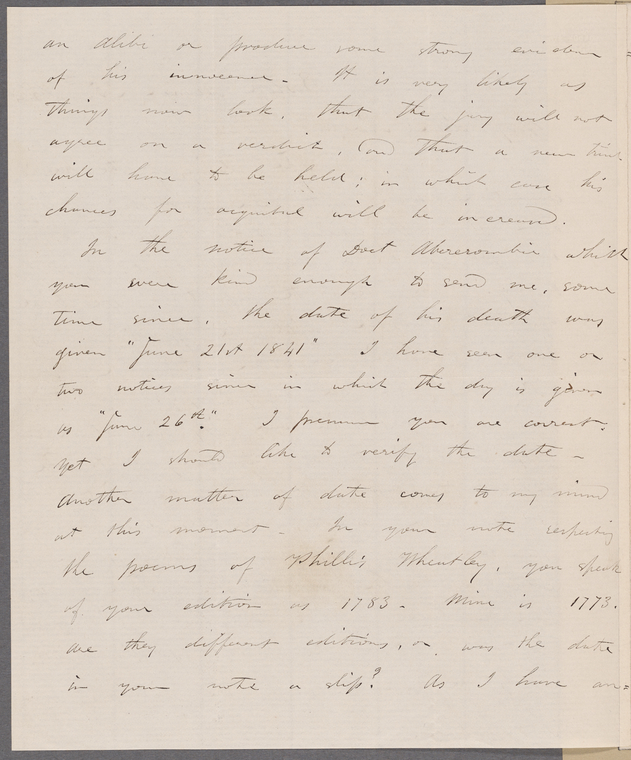 an Alibi or produce some strong eviden
of his innocence - It is very likely as
things now look, that the jury will not
agree on a verdict, and that a new trial
will have to be held; in which case his
chances for acquittal will be increased.
In the notice of Doct Abercrombie which
you were kind enough to send me, some
time since, the date of his death was
given "June 21st 1841" I have seen one or
two notices since in which the day is given
as "June 26th." I presume you are correct,
yet I should like to verify the date -
Another matter of date comes to my mind
at this moment - In your note respecting
the poems of Phillis Wheatley, you speak
of your edition as 1783 - Mine is 1773.
are they different editions, or was the date
in your note a slip? As I have an=